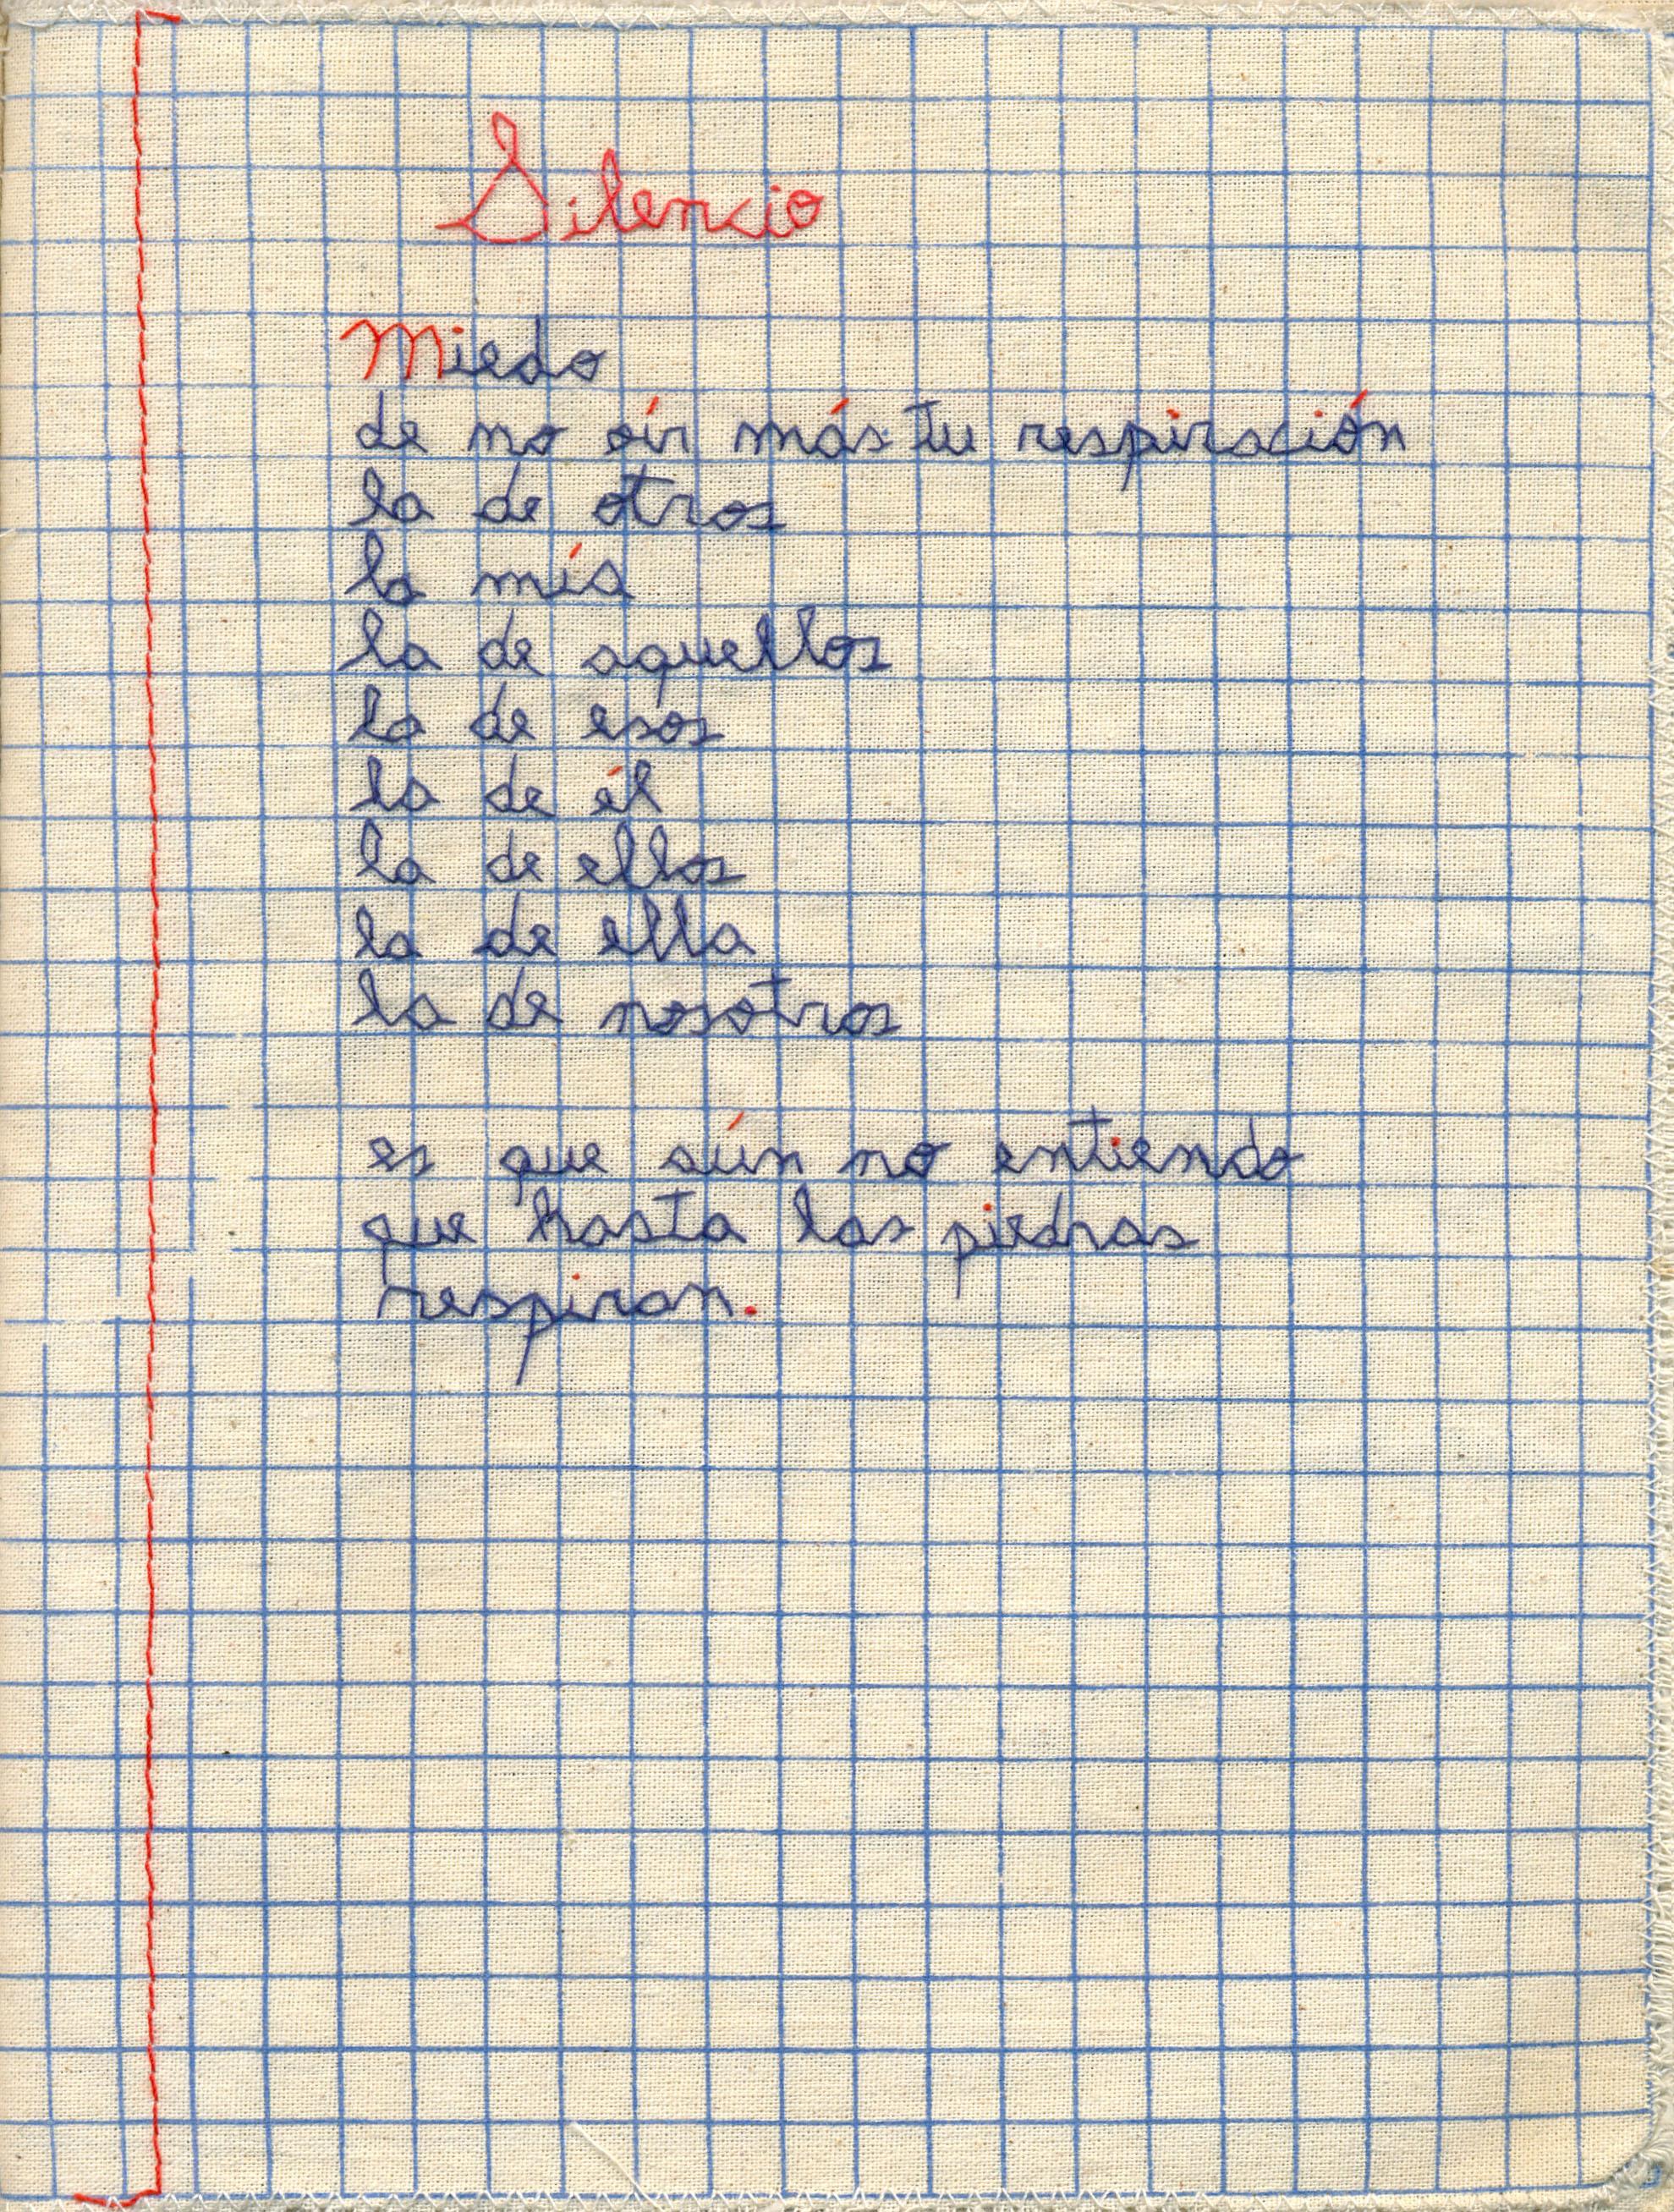 Silencio
Miedo
de no oír más tu respiración
la de otros
la mía
la de aquellos
la de esos
la de él
la de ellos
la de ella
la de nosotros
es que aún no entiendo
que hasta las piedras
respiran.